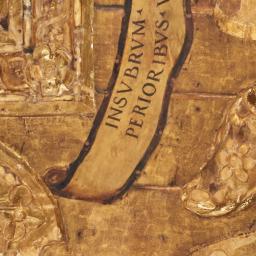 INSVBRVM
PERIORIBVS